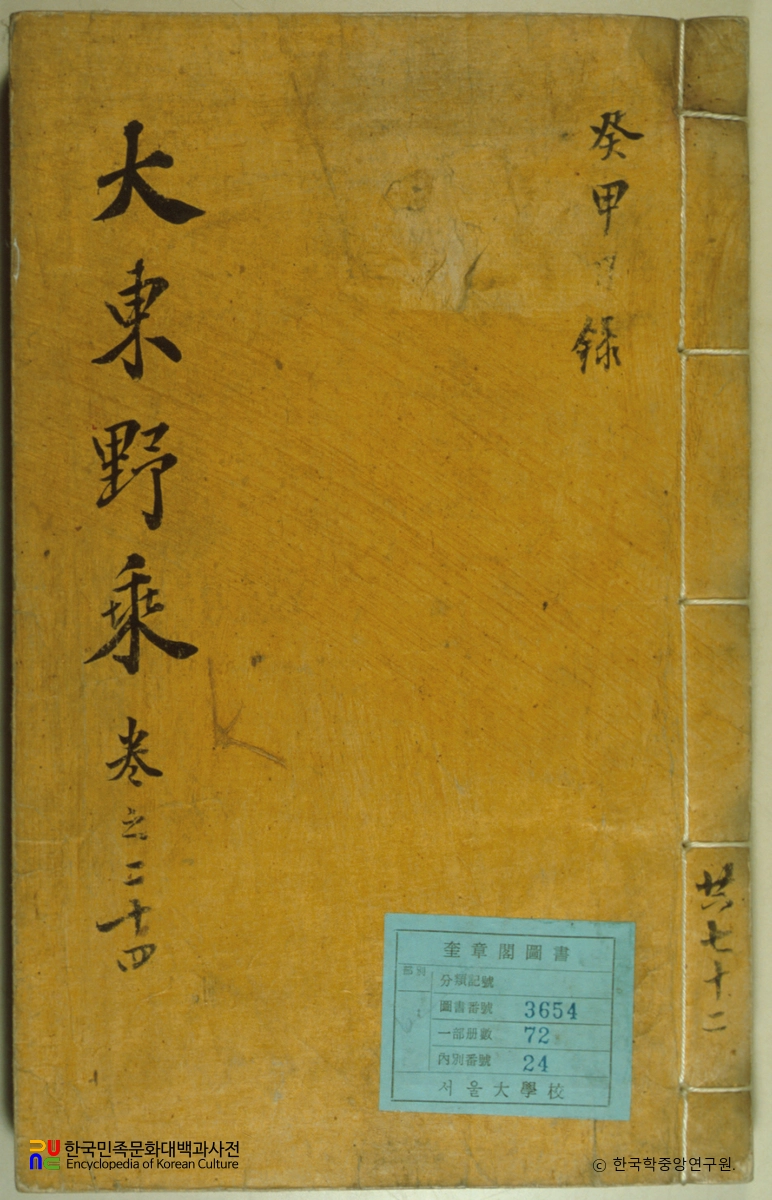 癸甲日錄
大東野乘 卷之二十四
共七十二
奎章閣圖書
部別
分類記號
圖書番號 3654
一部冊數 72
內別番號 24
서울大學校
한국민족문화대백과사전
Encyclopedia of Korean Culture
© 한국학중앙연구원